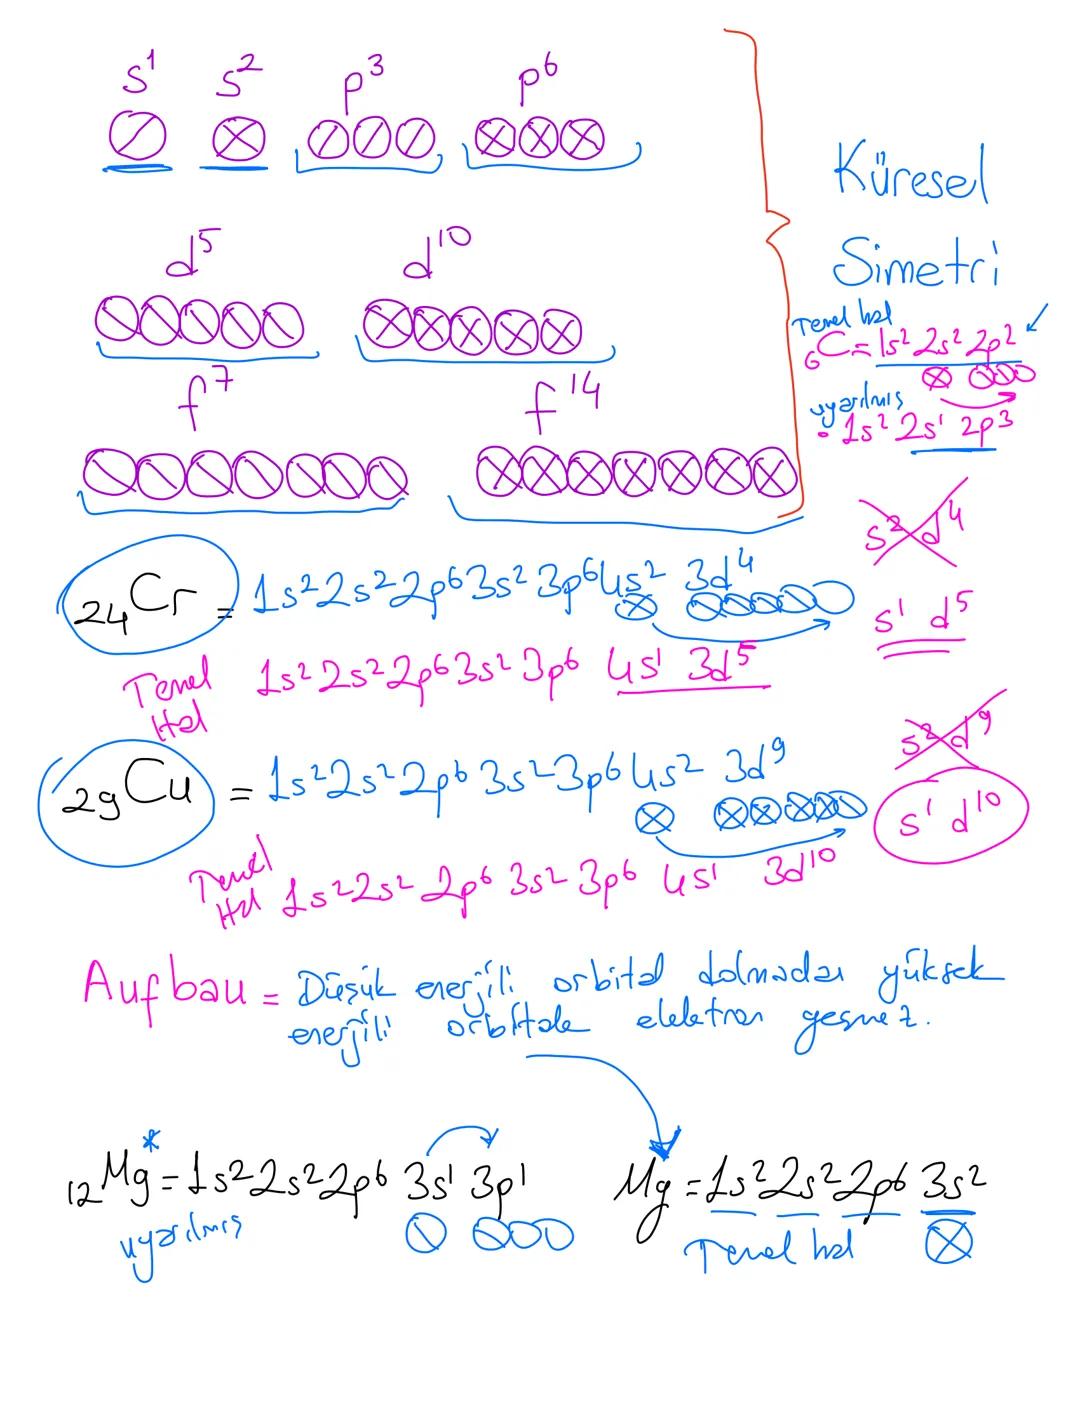 s¹ s² p³ p⁶
d⁵ d¹⁰
f⁷ f¹⁴
Küresel
Simetri
Temel hal
₆C = 1s² 2s² 2p²
uyarılmış
• 1s² 2s¹ 2p³
s² d⁴
s¹ d⁵
₂₄Cr = 1s² 2s² 2p⁶ 3s² 3p⁶ 4s² 3d⁴
Temel Hal 1s² 2s² 2p⁶ 3s² 3p⁶ 4s¹ 3d⁵
s² d⁹
s¹ d¹⁰
₂₉Cu = 1s² 2s² 2p⁶ 3s² 3p⁶ 4s² 3d⁹
Temel Hal 1s² 2s² 2p⁶ 3s² 3p⁶ 4s¹ 3d¹⁰
Aufbau = Düşük enerjili orbital dolmadan yüksek
enerjili orbitale elektron geçmez.
₁₂Mg* = 1s² 2s² 2p⁶ 3s¹ 3p¹
uyarılmış
Mg = 1s² 2s² 2p⁶ 3s²
Temel hal